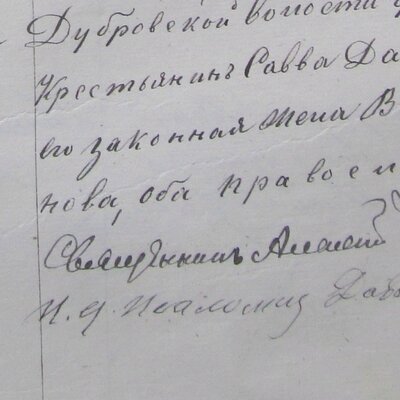 Дубровской волости д
Крестьянинъ Савва Да
его законная жена В
нова, оба правосл
Священникъ Алексей
И. д. Псаломщ Дав